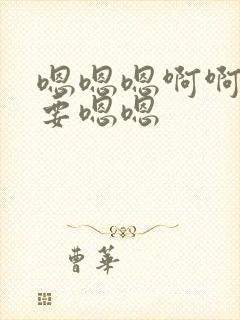 嗯嗯嗯啊啊
要嗯嗯
曹華